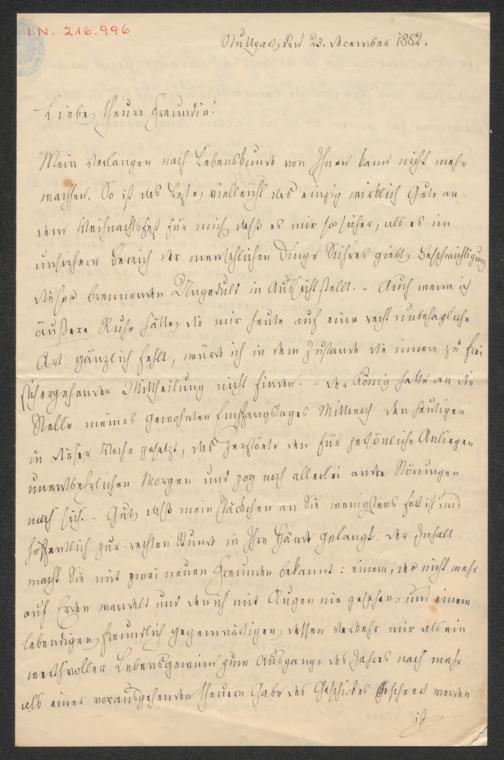 I.N. 216.996
Stuttgart, den 23. December 1882.
Liebe, theure Freundin!
Mein Verlangen nach Lebenskunde von Ihnen kann nicht mehr
wachsen. So ist das Beste, vielleicht das einzig wirklich Gute an
dem Weihnachtsfest für mich, daß es mir so sicher, als es im
unsichern Bereich der menschlichen Dinge Sichres giebt, Beschwichtigung
dieser brennenden Ungeduld in Aussicht stellt. - Auch wenn ich
äußere Ruhe hätte, die mir heute auf eine recht unbehagliche
Art gänzlich fehlt, würde ich in dem Zustande die innere zu frei
sich ergehenden Mittheilung nicht finden. - Der König hatte an die
Stelle meines gewohnten Empfangstages Mittwoch den heutigen
in dieser Woche gesetzt, das zerstörte den für persönliche Anliegen
unentbehrlichen Morgen und zog noch allerlei andre Störungen
nach sich. - Gut, daß mein Päckchen an Sie wenigstens fort ist und
hoffentlich zur rechten Stunde in Ihre Hände gelangt. Der Inhalt
macht Sie mit zwei neuen Freunden bekannt: einem, der nicht mehr
auf Erden wandelt und den ich mit Augen nie gesehen, und einem
lebendigen, freundlich gegenwärtigen, dessen Verkehr mir als ein
werthvoller Lebensgewinn zum Ausgange des Jahres noch mehr
als eine vorausgehende theure Gabe des Geschickes bescheert worden
ist